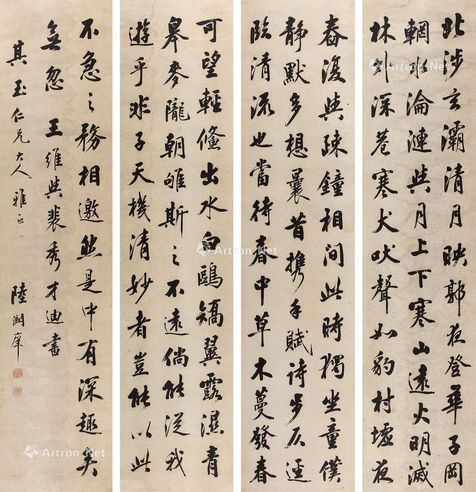 北涉玄灞清月映郭夜登華子岡
輞水淪漣與月上下寒山遠火明滅
林外深巷寒犬吠聲如豹村墟夜
舂復與疎鐘相間此時獨坐童僕
静默多想曩昔携手賦詩步仄逕
臨清流也當待春中草木蔓發春
可望輕鯈出水白鷗矯翼露濕青
皋麥隴朝雊斯之不遠倘能從我
遊乎非子天機清妙者豈能以此
不急之務相邀然是中有深趣矣
無忽 王維與裴秀才迪書
其玉仁兄大人雅正 陸潤庠
Artron.Net
Artron.Net
Artron.Net
Artron.Net